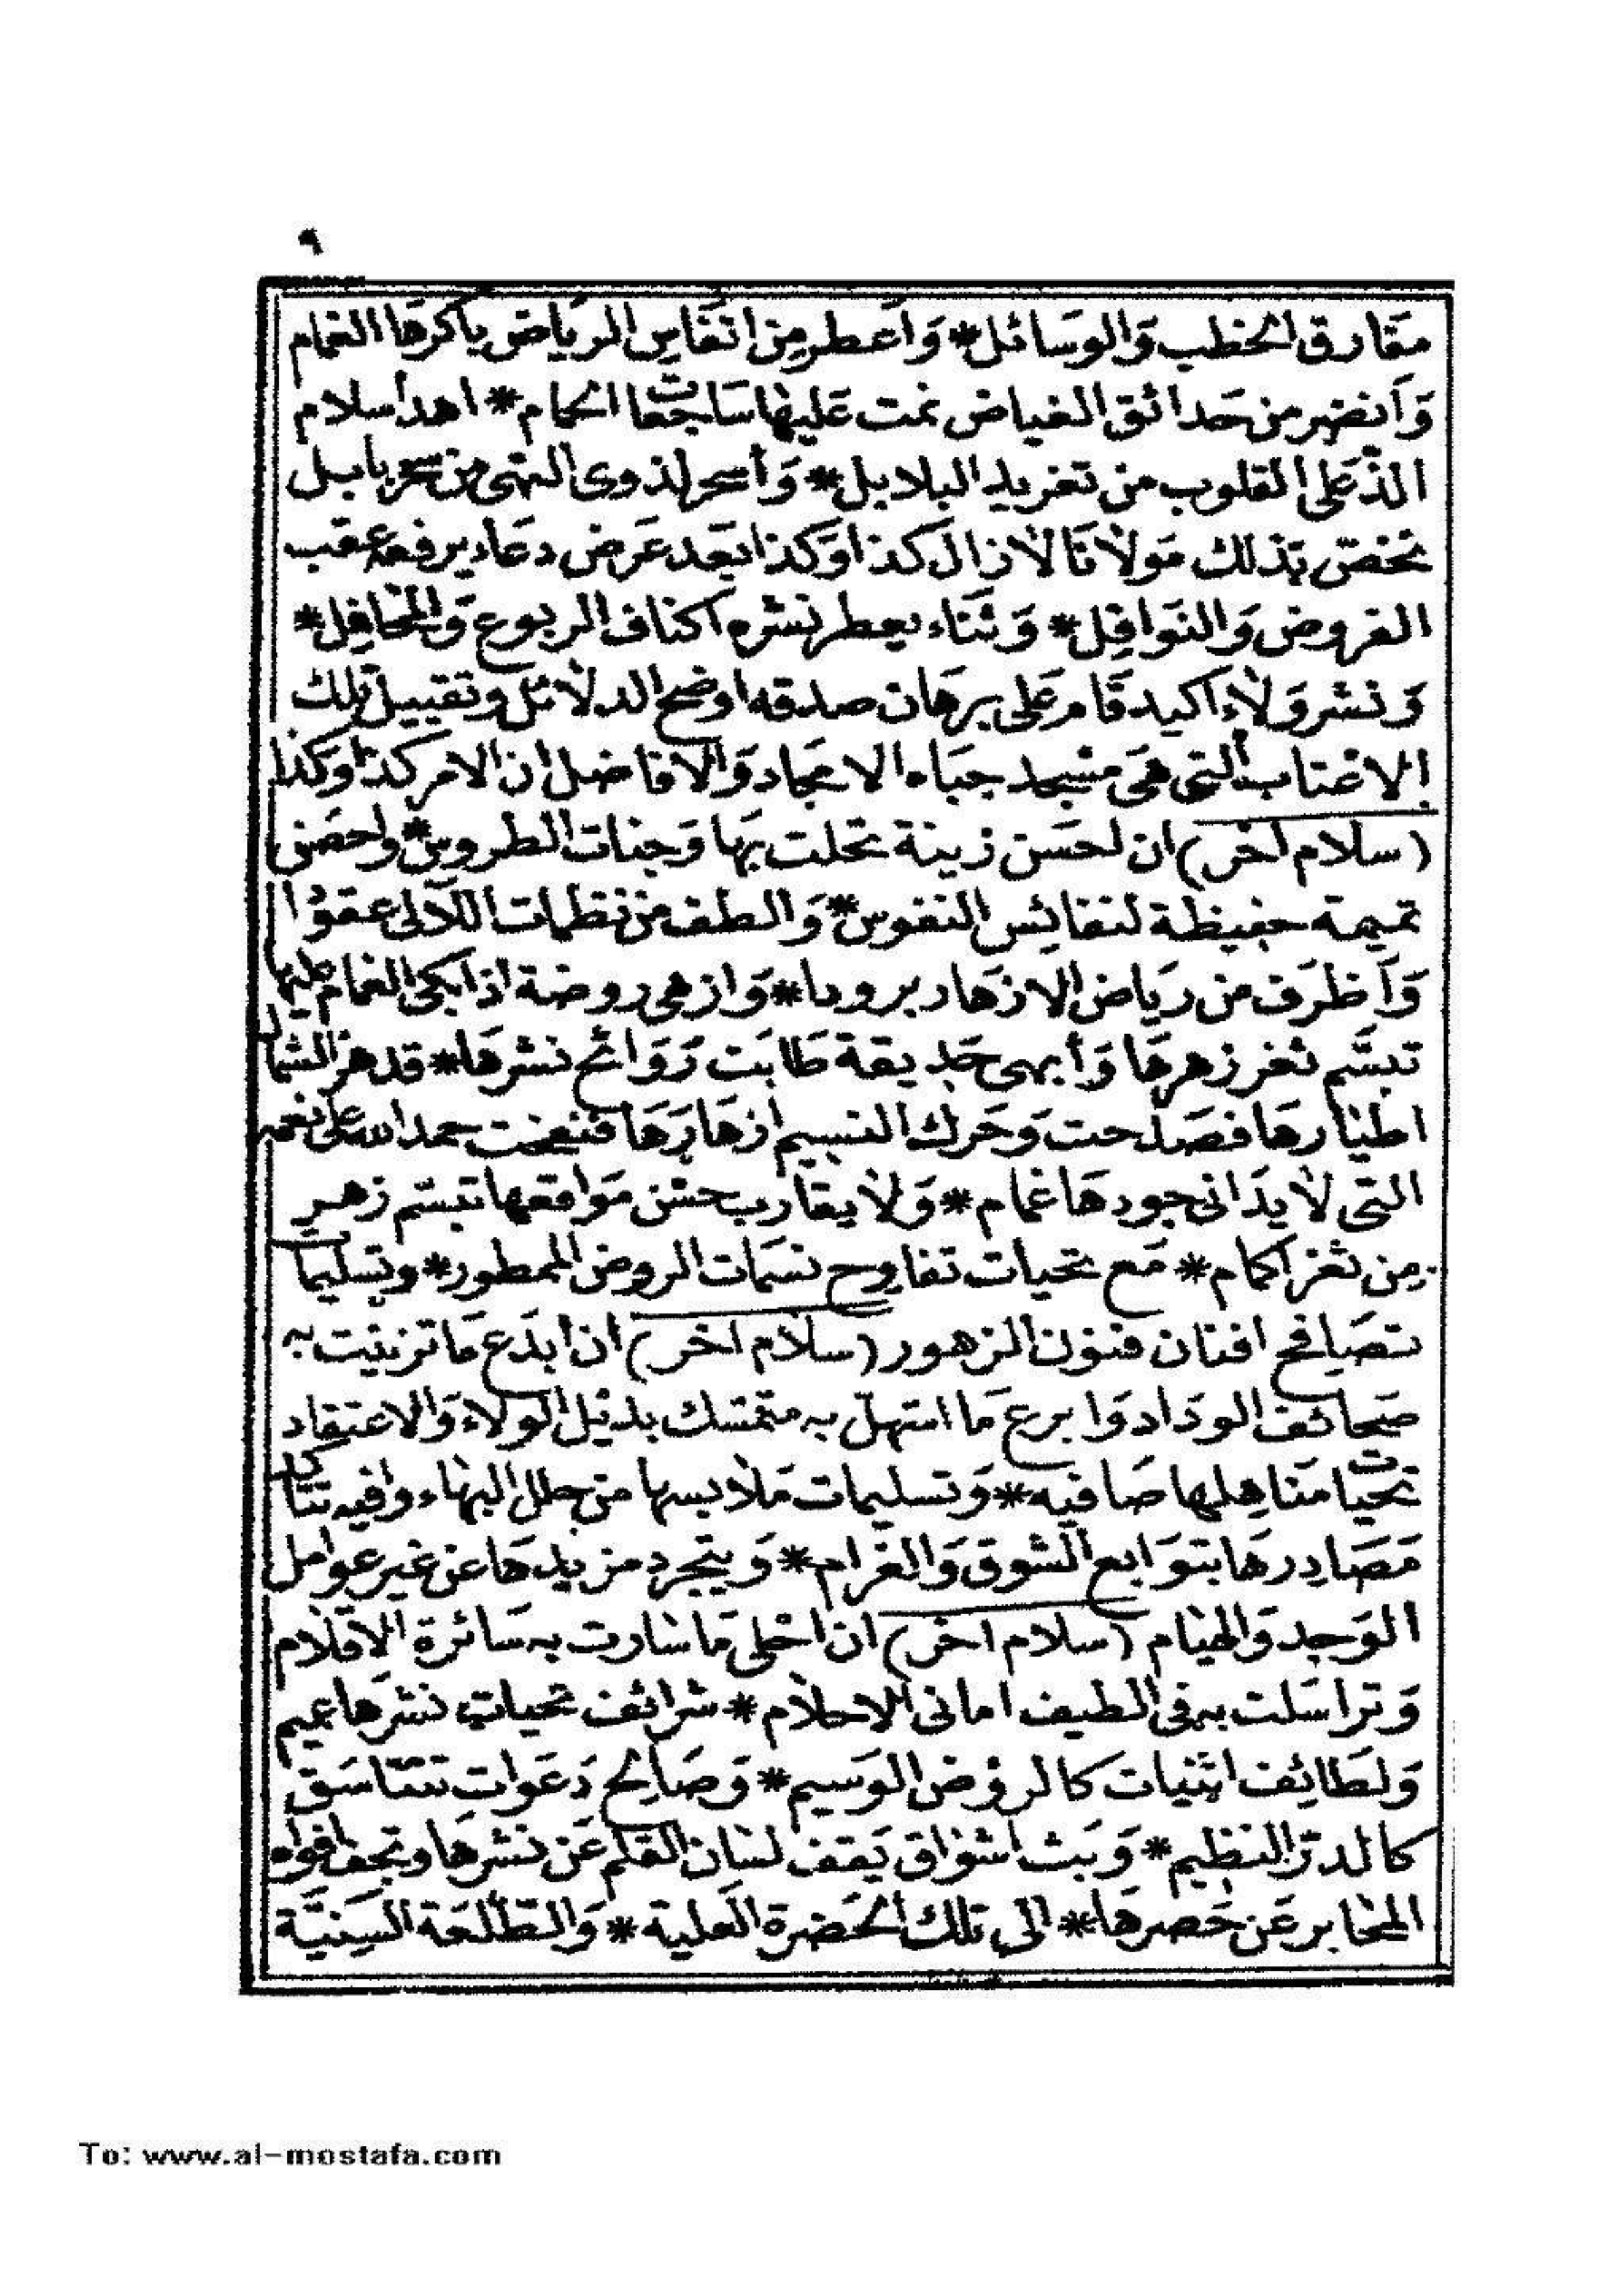 ٩
مَقَارق الخطب وَالوسَائل * وَأَعطر مِن انفَاس الرياض باكرهَا الغمام
وَأنضر من حَدائق الغياض نمت عَليها سَاجعَات الحمام * اهدأ سلام
الذّ عَلى القلوب من تغريد البلابل * وَأسحر لذوى النهى من سحر بابل
نخصّ بذلك مَولانا لازال كذا وَكذا بَعد عَرض دعَاء يرفعه عقب
الفروض وَالنوافِل * وَثَنَاء يعطر نشره اكناف الربوع وَالمحَافِل *
وَنشر وَلاء اكيد قَام عَلى برهَان صدقه اوضح الدلائل وتقبيل تلك
الاعتاب التى هىَ مسجد جبَاه الامجاد وَالافاضل ان الامر كذا وكذا
(سلام اخر) ان احسَن زينة تحلت بهَا وَجنات الطروس * واحصَن
تميمة حفيظة لنفائِس النفوس * وَالطف من نظمات اللآلى عقودا
وَأظرَف من ريَاض الازهَار برودا * وَازهى روضة اذا بكى الغمام عليها
تبسَّم ثغر زهرهَا وَأبهى حَديقة طَابَت رَوَائح نشرهَا * قد هز الشمال
اطيَارهَا فصَدحت وَحَرك النسيم ازهَارَهَا فنفحت حمد الله على نعمه
التى لا يدَانى جودهَا غمام * وَلا يقارب حسْن مَوَاقعها تبسّم زهر
مِن ثغر اكمام * مَع تحيات تفاوح نسَمات الروض الممطور * وتسليمات
تصَافح افنان فنون الزهور (سلام اخر) ان ابدَع مَا تزينت به
صَحائف الودَاد وَابرع مَا استهلّ به متمسّك بذيل الولاء وَالاعتقاد
تحيَات مَنَاهِلها صَافيه * وَتسليمات مَلابسها من حلل البهَاء وافيه تتاكد
مَصَادِرهَا بتوَابع الشوق وَالغرَام * وَيتجرد مزيدهَا عن غير عوامل
الوَجد وَالهيام (سلام اخر) ان احلى مَا سارت به سَائرة الاقلام
وَتراسَلت به فى الطيف امانى الاحلام * شرائف تحيات نشرهَا عميم
وَلطَائِف اثنيات كالروض الوَسيم * وَصَالِح دَعَوات تتنَاسَق
كالدرّ النظيم * وَبَث اشوَاق يَقف لسَان القلم عَن نشرهَا وتجف افواه
المحَابر عَن حَصرهَا * الى تلك الحَضرة العلية * وَالطلعَة السَنيَّة
To: www.al-mostafa.com